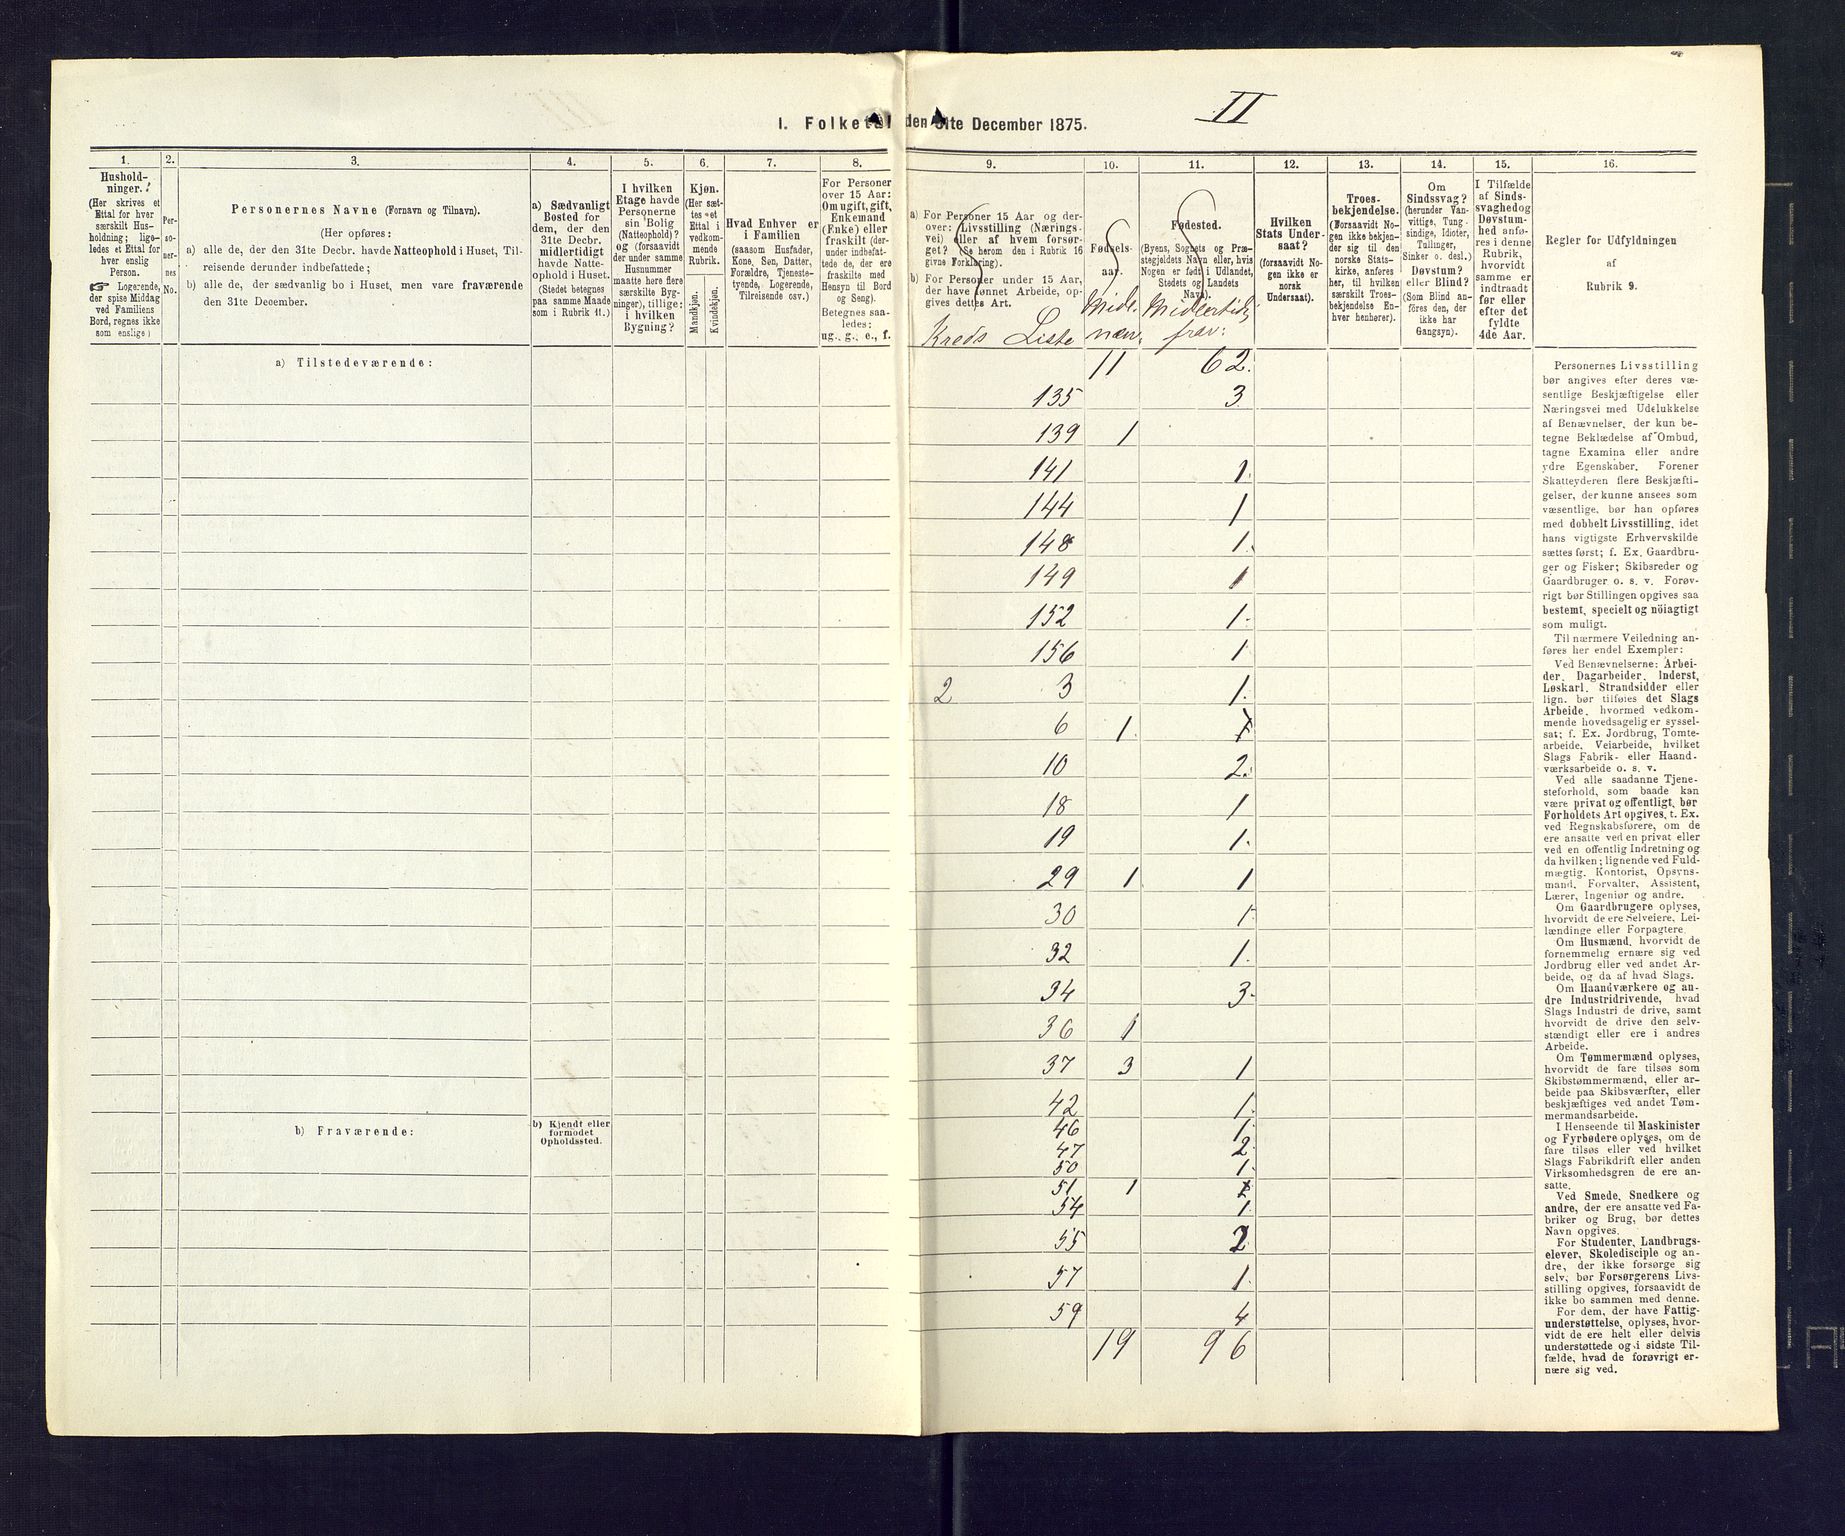 II
1. Folketal den 31te December 1875.
1. 2. 3. 4. 5. 6. 7. 8. 9. 10. 11. 12. 13. 14. 15. 16.
Hushold-
ninger.
(Her skrives et
Ettal for hver
særskilt Hus-
holdning; lige-
ledes et Ettal for
hver enslig
Person.
☞ Logerende,
der spise Middag
ved Familiens
Bord, regnes ikke
som enslige)
Per-
so-
ner-
nes
No.
Personernes Navne (Fornavn og Tilnavn).
(Her opføres:
a) alle de, der den 31te Decbr. havde Natteophold i Huset, Til-
reisende derunder indbefattede;
b) alle de, der sædvanlig bo i Huset, men vare fraværende
den 31te December.
a) Sædvanligt
Bosted for
dem, der den
31te Decbr.
midlertidigt
havde Natte-
ophold i Huset.
(Stedet betegnes
paa samme Maade
som i Rubrik 11.)
I hvilken
Etage havde
Personerne
sin Bolig
(Natteophold)?
og (forsaavidt
der under samme
Husnummer
maatte høre flere
særskilte Byg-
ninger), tillige:
i hvilken
Bygning?
Kjøn.
(Her sæt-
tes et
Ettal i
vedkom-
mende
Rubrik.
Mandkjøn.
Kvindekjøn.
Hvad Enhver er
i Familien
(saasom Husfader,
Kone, Søn, Datter,
Forældre, Tjeneste-
tyende, Logerende,
Tilreisende osv.)
For Personer
over 15 Aar:
Om ugift, gift,
Enkemand
(Enke) eller
fraskilt (der-
under indbefat-
tede de, der ere
fraskilte med
Hensyn til Bord
og Seng).
Betegnes saa-
ledes:
ug., g., e., f.
a) For Personer 15 Aar og der-
over: Livsstilling (Nærings-
vei) eller af hvem forsør-
get? (Se herom den i Rubrik 16
givne Forklaring).
b) For Personer under 15 Aar,
der have lønnet Arbeide, op-
gives dettes Art.
Kreds Liste
Fødsels-
aar.
Midl.
nær.
Fødested.
(Byens, Sognets og Præ-
stegjeldets Navn eller, hvis
Nogen er født i Udlandet,
Stedets og Landets
Navn).
Midlertid.
frav:
Hvilken
Stats Under-
saat?
(forsaavidt No-
gen ikke er
norsk
Undersaat).
Troes-
bekjendelse.
(Forsaavidt No-
gen ikke bekjen-
der sig til den
norske Stats-
kirke, anføres
her, til hvilken
særskilt Troes-
bekjendelse En-
hver henhører).
Om
Sindssvag?
(herunder Van-
vittige, Tung-
sindige, Idioter,
Tullinger,
Sinker o. desl.)
Døvstum?
eller Blind?
(Som Blind an-
føres den, der
ikke har
Gangsyn).
I Tilfælde
af Sinds-
svaghed og
Døvstum-
hed anfø-
res i denne
Rubrik,
hvorvidt
samme er
indtraadt
før eller
efter det
fyldte
4de Aar.
Regler for Udfyldningen
af
Rubrik 9.
a) Tilstedeværende:
11 62.
135 3
139 1
141 1.
144 1
148 1.
149 1
152 1.
156 1
2 3 1.
6 1.
10 2.
18 1
19 1.
29 1 1
30 1
32 1.
34 3.
36 1
37 3 1
42 1.
46 1.
47 2
50 1.
51 1
54 1.
55 2
57 1.
59 4
19 96
b) Fraværende:
b) Kjendt eller
formodet
Opholdssted.
Personernes Livsstilling
bør angives efter deres væ-
sentlige Beskjæftigelse eller
Næringsvei med Udelukkelse
af Benævnelser, der kun be-
tegne Beklædelse af Ombud,
tagne Examina eller andre
ydre Egenskaber. Forener
Skatteyderen flere Beskjæfti-
gelser, der kunne ansees som
væsentlige, bør han opføres
med dobbelt Livsstilling, idet
hans vigtigste Erhvervskilde
sættes først; f. Ex. Gaardbru-
ger og Fisker; Skibsreder og
Gaardbruger o. s. v. Forøv-
rigt bør Stillingen opgives saa
bestemt, specielt og nöiagtigt
som muligt.
Til nærmere Veiledning an-
føres her endel Exempler:
Ved Benævnelserne: Arbei-
der, Dagarbeider, Inderst,
Løskarl, Strandsidder eller
lign. bør tilføies det Slags
Arbeide, hvormed vedkom-
mende hovedsagelig er syssel-
sat; f. Ex. Jordbrug, Tomte-
arbeide, Veiarbeide, hvilket
Slags Fabrik- eller Haand-
værksarbeide o. s. v.
Ved alle saadanne Tjene-
steforhold, som baade kan
være privat og offentligt, bør
Forholdets Art opgives, t. Ex.
ved Regnskabsførere, om de
ere ansatte ved en privat eller
ved en offentlig Indretning og
da hvilken; lignende ved Fuld-
mægtig, Kontorist, Opsyns-
mand, Forvalter, Assistent,
Lærer, Ingeniør og andre.
Om Gaardbrugere oplyses,
hvorvidt de ere Selveiere, Lei-
lændinge eller Forpagtere.
Om Husmænd, hvorvidt de
fornemmelig ernære sig ved
Jordbrug eller ved andet Ar-
beide, og da af hvad Slags.
Om Haandværkere og an-
dre Industridrivende, hvad
Slags Industri de drive, samt
hvorvidt de drive den selv-
stændigt eller ere i andres
Arbeide.
Om Tømmermænd oplyses,
hvorvidt de fare tilsøs som
Skibstømmermænd, eller ar-
beide paa Skibsværfter, eller
beskjæftiges ved andet Tøm-
mermandsarbeide.
I Henseende til Maskinister
og Fyrbødere oplyses, om de
fare tilsøs eller ved hvilket
Slags Fabrikdrift eller anden
Virksomhedsgren de ere an-
satte.
Ved Smede, Snedkere og
andre, der ere ansatte ved Fa-
briker og Brug, bør dettes
Navn opgives.
For Studenter, Landbrugs-
elever, Skoledisciple og an-
dre, der ikke forsørge sig
selv, bør Forsørgerens Livs-
stilling opgives, forsaavidt de
ikke bo sammen med denne.
For dem, der have Fattig-
understøttelse, oplyses, hvor-
vidt de ere helt eller delvis
understøttede og i sidste Til-
fælde, hvad de forøvrigt er-
nære sig ved.